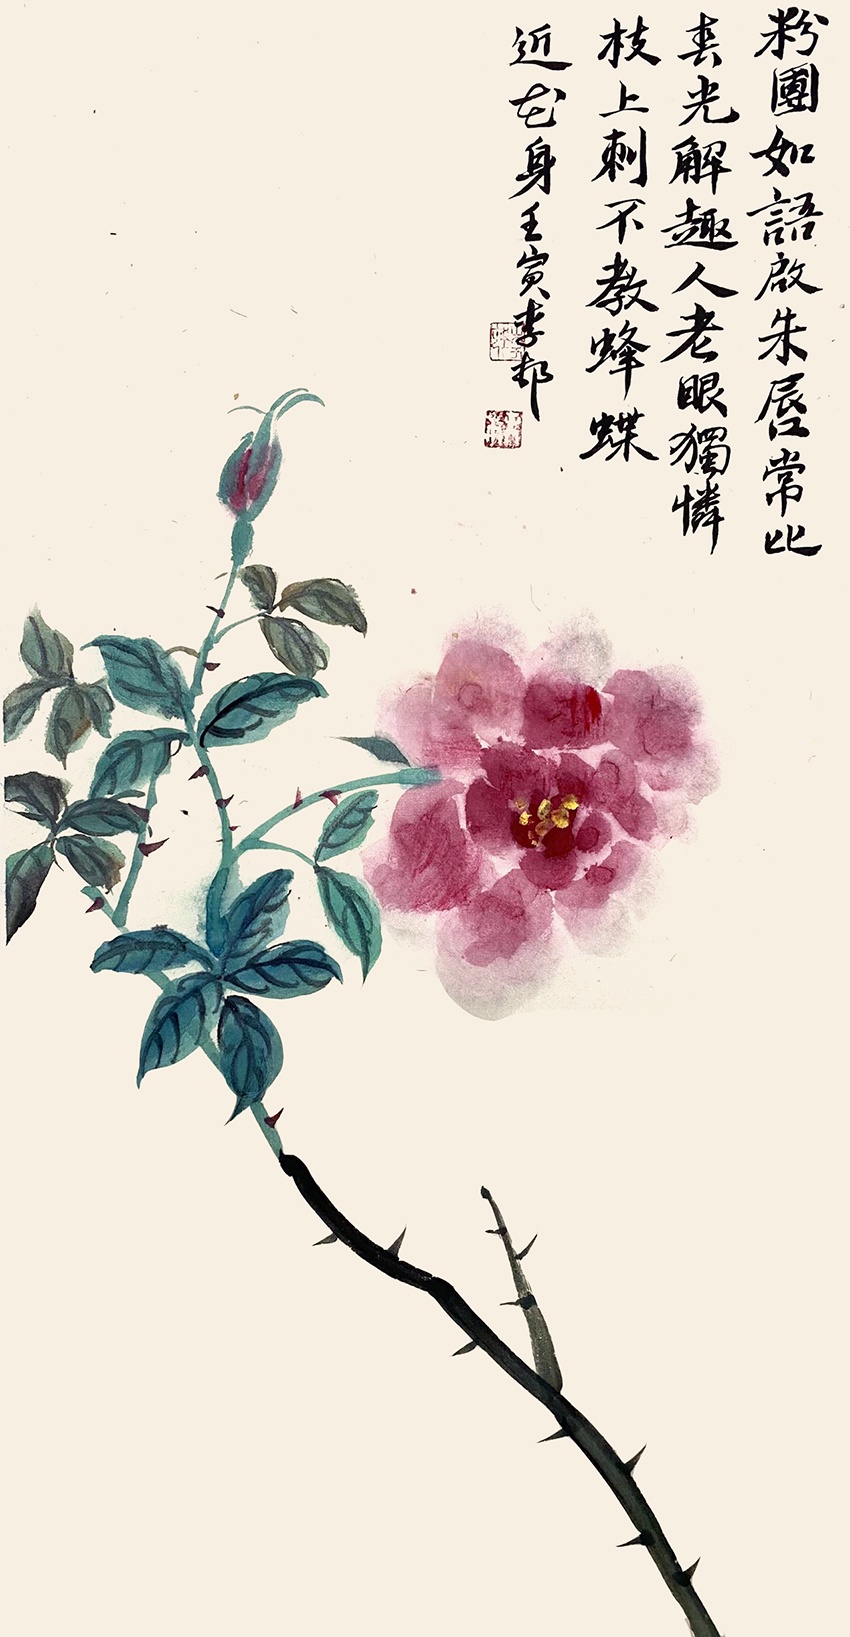 粉團如語啟朱唇常比
春光解趣人老眼獨憐
枝上刺不教蜂蝶
近花身壬寅李邦